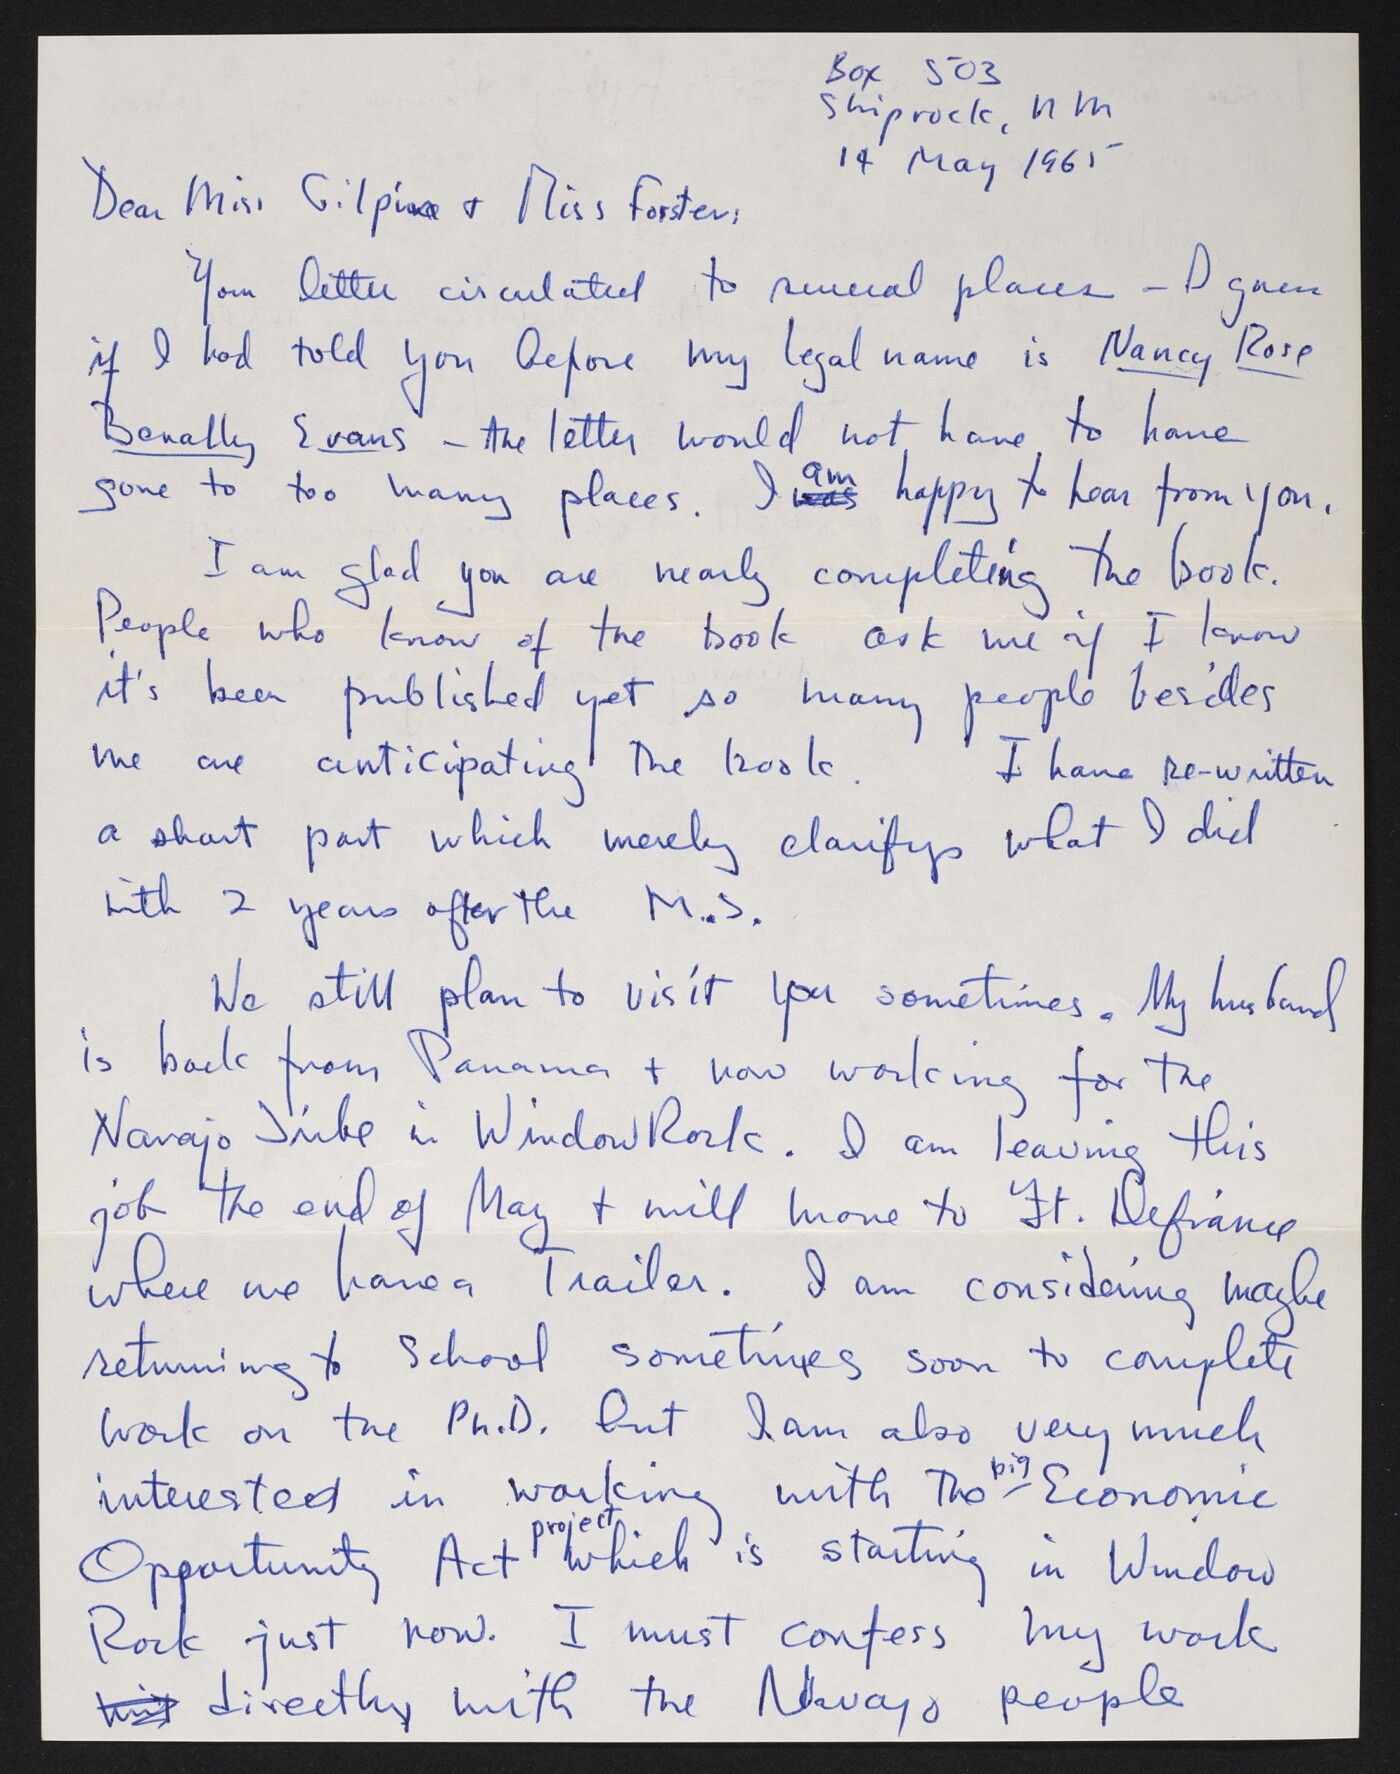 Box 503
Shiprock, N M
14 May 1965
Dear Miss Gilpin + Miss Forster:
Your letter circulated to several places – I guess
if I had told you before my legal name is Nancy Rose
Benally Evans – the letter would not have to have
gone to too many places. I was am happy to hear from you.
I am glad you are nearly completing the book.
People who know of the book ask me if I know
it's been published yet so many people besides
me are anticipating the book. I have re-written
a short part which merely clarifys what I did
with 2 years after the M.S.
We still plan to visit you sometimes. My husband
is back from Panama + now working for the
Navajo Tribe in Window Rock. I am leaving this
job the end of May + will move to Ft. Defiance
where we have a Trailer. I am considering maybe
returning to School sometimes soon to complete
work on the Ph.D. but I am also very much
interested in working with the big Economic
Opportunity Act project which is starting in Window
Rock just now. I must confess my work
directly with the Navajo people